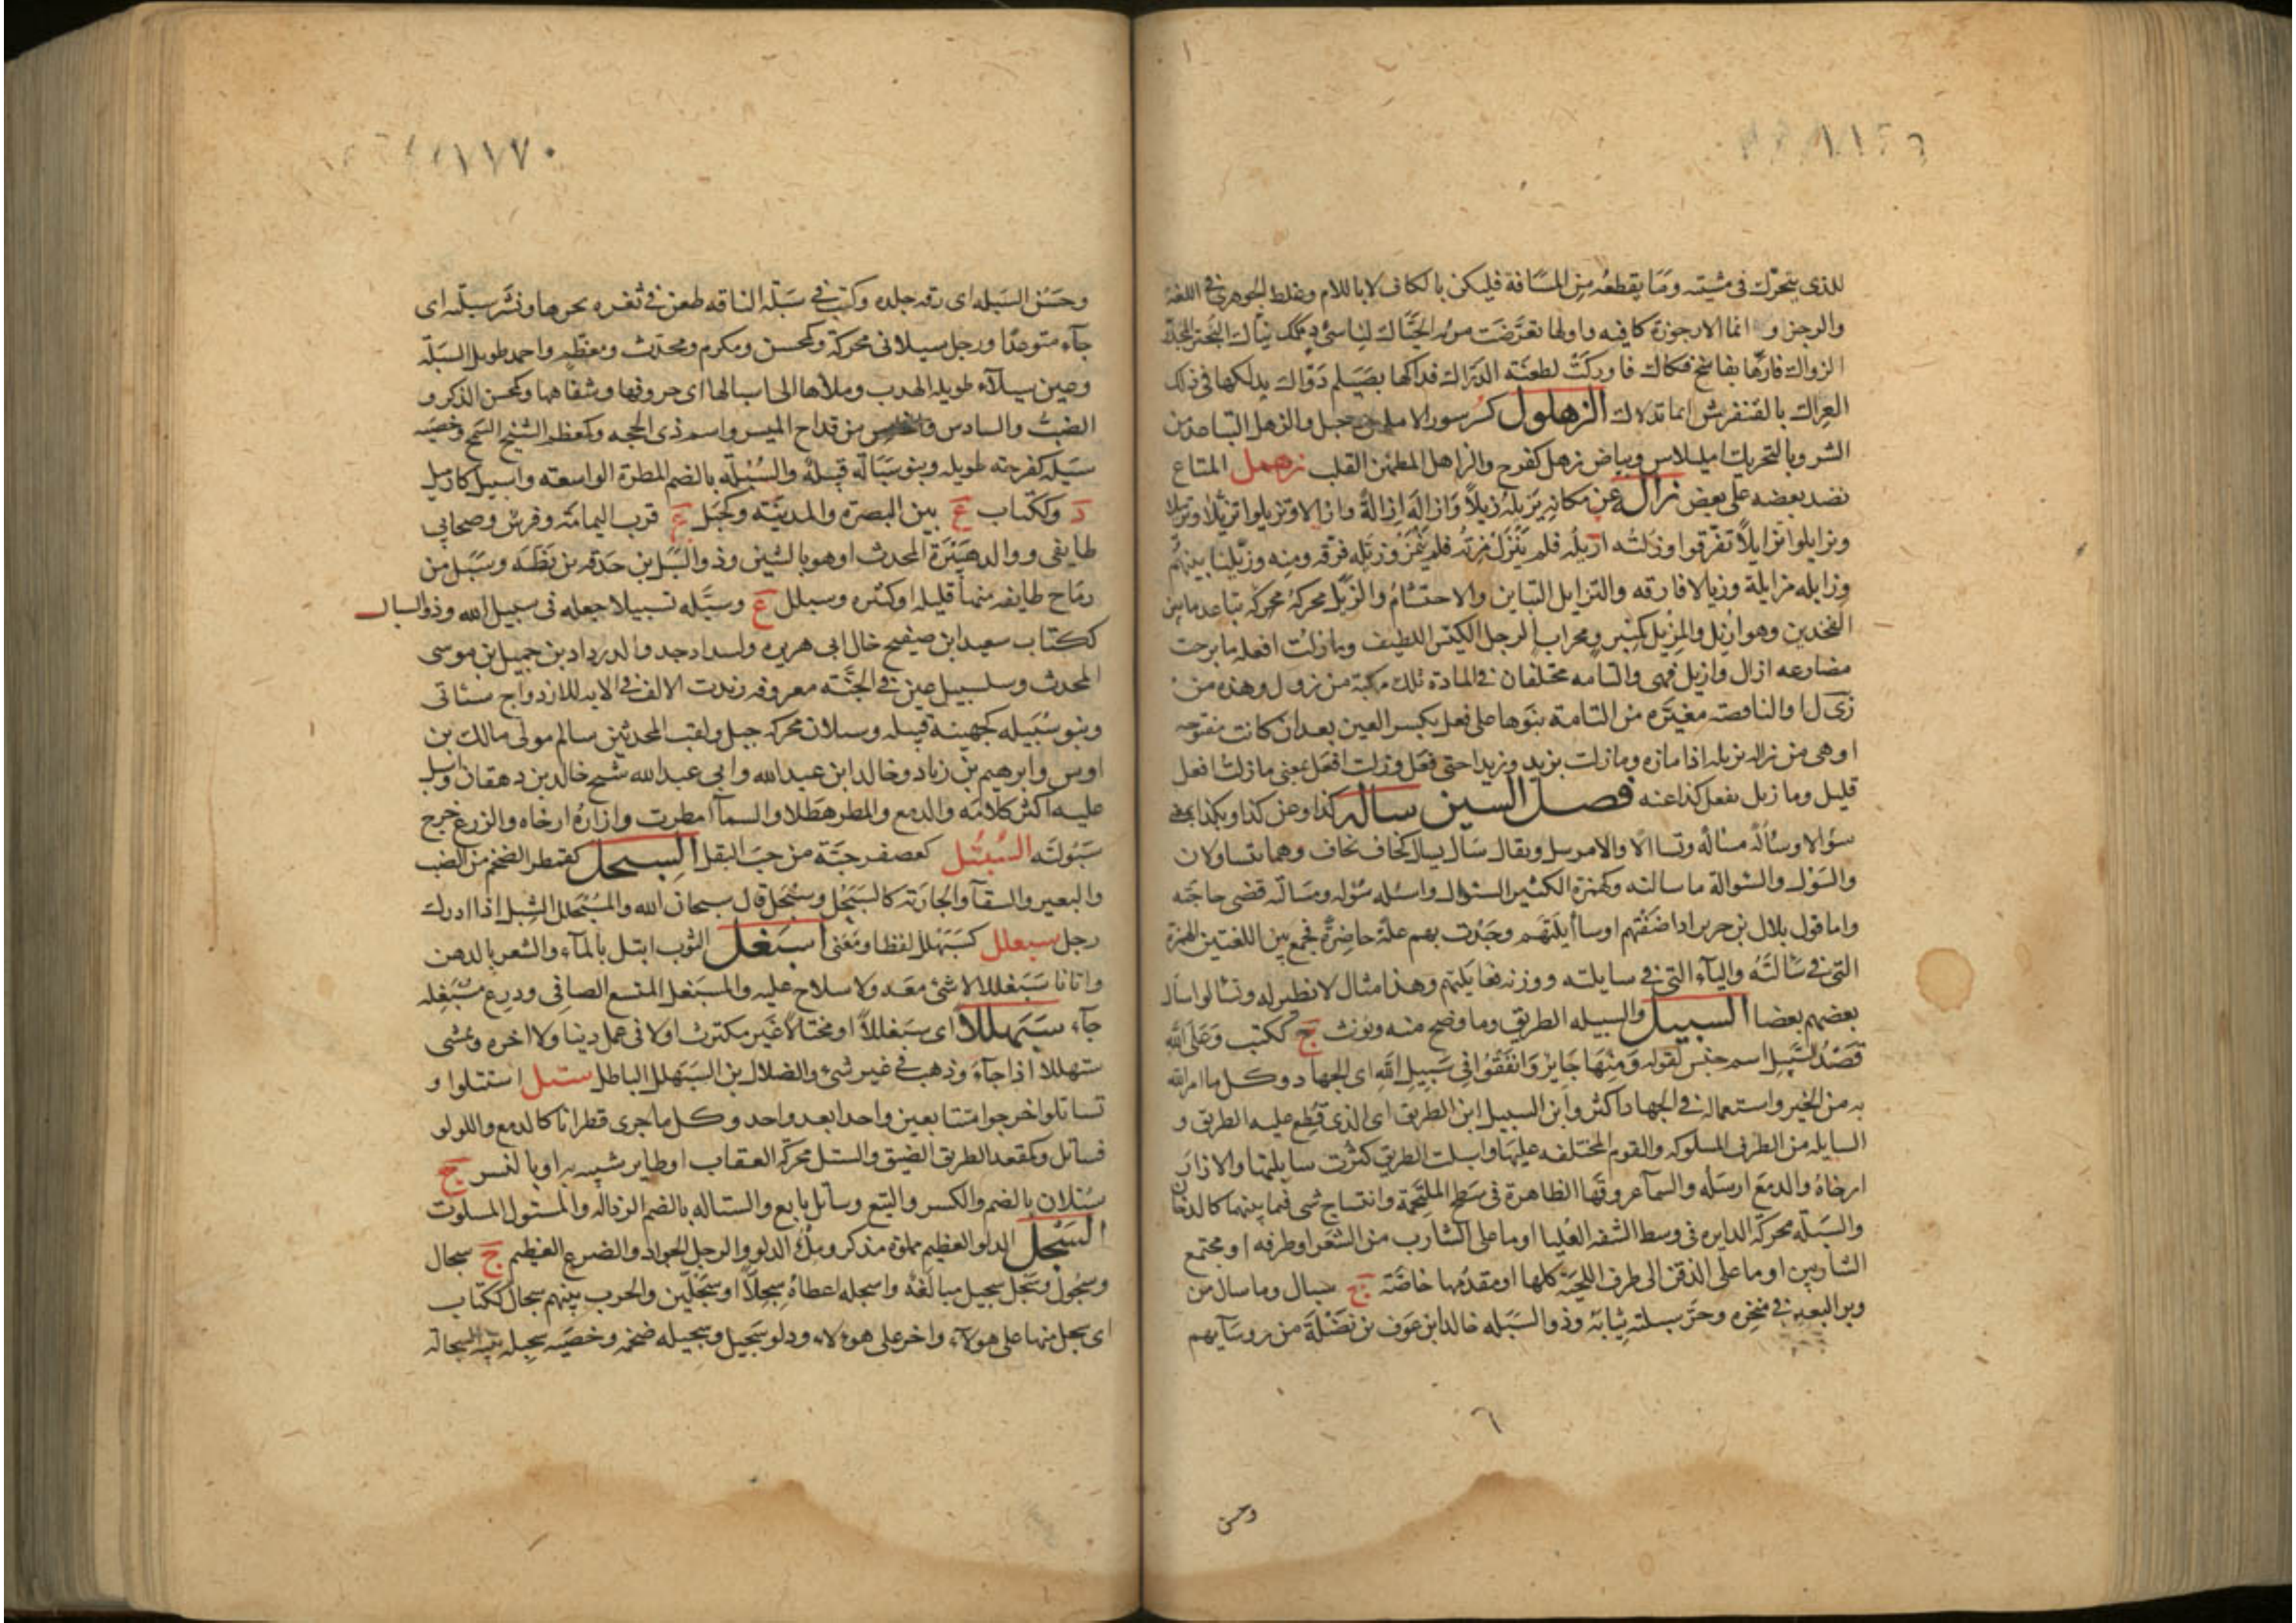 للذى يتحرّك فى مشيته وما يقطعه من المسافة فليكن بالكاف لا باللام وغلط الجوهرى فى اللغة
والرجز و انما الارجوزة كافيه واولها تعرّضت
الزواك فارّها بفاسخ فكاك فاوركت لطعنه الدراك فداكها بصيلم دوّاك يدلكها فى ذلك
العراك بالقنفرش ايما تدلاك الزهلول كسرسور الاملس وجبل والزهل التباعد من
الشر وبالتحريك امليلاس وبياض زهل كفرح والزاهل المطمئن القلب زهمل المتاع
نضد بعضه على بعض زال عن مكانه يزيله زيلًا وازاله ازالةً وازالا وتزيلوا تزيّلا وتزييلا
وتزايلوا تزايلًا تفرّقوا وزلته ازيله فلم ينزل مزته فلم ينمز وزيّله فرّقه ومنه وزيّلنا بينهم
وزايله مزايلة وزيالا فارقه والتزايل التباين والاحتشام والزيل محركة تباعد ما بين
الفخذين وهو ازيل والمزيل كمنبر ومحراب الرجل الكيس اللطيف وما زلت افعله ما برحت
مضارعه ازال وازيل فهى والتامه مختلفان فى المادة تلك مركبة من زول وهذه من
زى ل او الناقصة مغيّره من التامة بنوها على فعل بكسر العين بعد ان كانت مفتوحه
او هى من زاله يزيله اذا مازه وما زلت بزيد وزيدا حتى فعل وزلت افعل بمعنى ما زلت افعل
قليل وما زيل يفعل كذا عنه فصل السين ساله كذا وعن كذا وبكذا بمعنى
سؤالا وسألة مسألة وتسآلا والامر سل ويقال سال يسال كخاف يخاف وهما يتساولان
والسؤل والسولة ما سالته وكهمزة الكثير السؤال واسئله سؤله ومسألته قضى حاجته
واما قول بلال بن جرير اذا ضفتهم او ساأيلتهم وجدت بهم علة حاضرة فجمع بين اللغتين الهمزة
التى فى سألته والياء التى فى سايلته ووزنه فعايلتهم وهذا مثال لا نظير له وتسألوا سأل
بعضهم بعضا السبيل والسبيله الطريق وما وضح منه ويونث ج ككتب وعلى الله
قصد السبيل اسم جنس لقوله ومنها جاير وانفقوا فى سبيل الله اى الجهاد وكل ما امر الله
به من الخير واستعماله فى الجهاد اكثر وابن السبيل ابن الطريق اى الذى قطع عليه الطريق و
السابله من الطرق المسلوكه والقوم المختلفه عليها واسبلت الطريق كثرت سابلتها والازار
ارخاه والدمع ارسله والسمآ عروقها الظاهرة فى سطح الملتحمة وانتساج شى فيما بينهما كالدخان
والسبله محركة الدايره فى وسط الشفه العليا او ما على الشارب من الشعر او طرفه او مجتمع
الشاربين او ما على الذقن الى طرف اللحية كلها او مقدمها خاصّة ج سبال وما سال من
وبر البعير فى منخره وجرّ سبلته ثيابه وذو السبله خالد ابن عوف بن نضلة من روسآيهم
وحسن
وحسن السبله اى رقه جلده وكتب فى سبلة الناقه طعن فى ثغره نحرها ونشر سبلته اى
جآء متوعدًا ورجل سبلانى محركة وكمحسن ومكرم ومحدّث ومعظّم واحمد طويل السبلة
وعين سبلآء طويله الهدب وملأها الى اسبالها اى حروفها وشفاهها وكمحسن الذكر و
الضبّ والسادس من قداح الميسر واسم ذى الحجه وكمعظم الشيخ السمج وخصيه
سبله كفرحه طويله وبنو سبالة قبيلة والسُبله بالضم المطرة الواسعه واسبيل كازميل
د وككتاب ع بين البصرة والمدينه وكجبل ع قرب اليمامة وفرس وصحابى
طايفى ووالد هبيرة المحدث او هو بالشين وذو السبل بن حدقه بن بطّه وسبل من
رماح طايفه منها قليله او كثره وسبلل ع وسبّله تسبيلا جعله فى سبيل الله وذو السبال
ككتاب سعيد ابن صفيح خال ابى هريره والسبال جد والد ازداد بن جميل بن موسى
المحدث وسلسبيل عين فى الجنّه معروفه زيدت الالف فى الايه للازدواج ستاتى
وبنو سُبيله كجهينة قبيله وسبلان محركه جبل ولقب المحدثين سالم مولى مالك بن
اوس وابرهيم بن زياد وخالد ابن عبد الله وابى عبد الله شيخ خالد بن دهقان واسبل
عليه اكثر كلامه والدمع والمطر هطلا والسمآ امطرت وازاره ارخاه والزرع خرج
سبولته السُّبتُل كعصفر حبّة من حبّ البقل السبحل كقمطر الضخم من الضب
والبعير والسقآ والجارية كالسبحل وسبحل قال سبحان الله والمسبحل الشبل اذا ادرك
رجل سبعلل كسبهلل لفظا ومعنى اسبغلّ الثوب ابتل بالمآء والشعر بالدهن
واتانا سبغللا لا شئ معه ولا سلاح عليه والمسبغل المتسع الصافى ودرع مسبغله
جآء سبهللا اى سبغللًا او مختالًا غير مكترث او لا فى عمل دينا ولا اخره ويمشى
سبهللا اذا جآء وذهب فى غير شئ والضلال بن السبهلل الباطل ستل استتلوا و
تساتلوا خرجوا متتابعين واحدا بعد واحد وكل ما جرى قطرانا كالدمع واللولو
فساتل وكمقعد الطريق الضيق والستل محركة العقاب او طاير شبيه به او بالنسر ج
ستلان بالضم والكسر والتبع وساتل تابع والستاله بالضم الرذاله والمستول المسلوت
السَّجل الدلو العظيم مملوّه مذكر وملء الدلو والرجل الجواد والضرع العظيم ج سجال
وسجول وسجل سجيل مبالغة واسجله اعطاه سجلًا او سجلين والحرب بينهم سجال ككتاب
اى سجل منها على هولآء واخر على هولاء ودلو سجيل وسجيله ضخمه وخصيه سجيله بيّنه السجالة